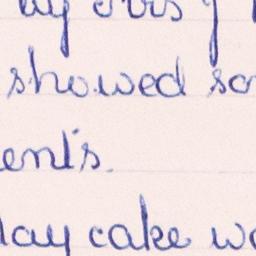 showed so
ents.
day cake wa